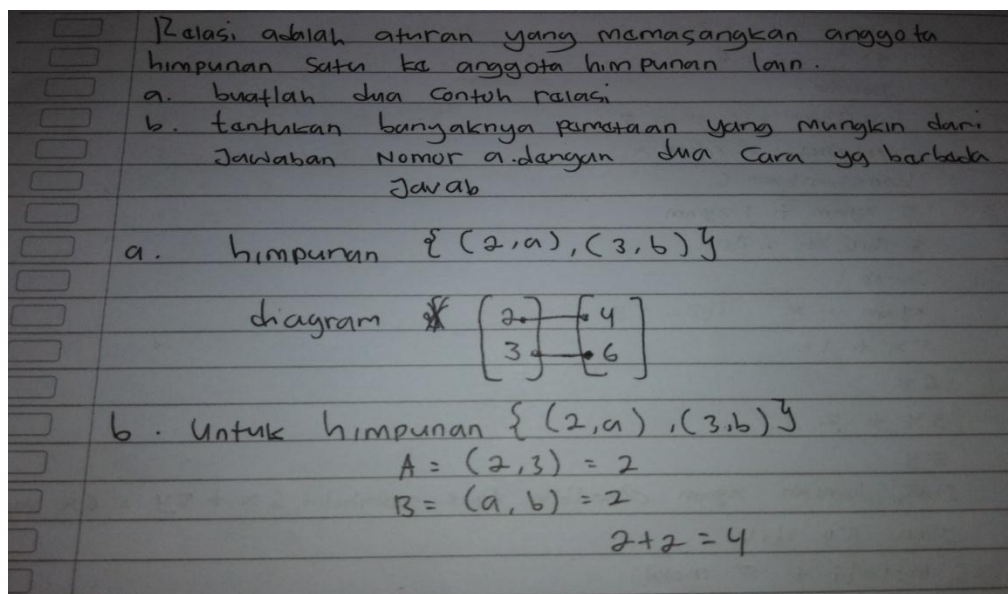 Relasi adalah aturan yang memasangkan anggota
himpunan satu ke anggota himpunan lain.
a. buatlah dua contoh relasi
b. tentukan banyaknya pemetaan yang mungkin dari
Jawaban Nomor a. dengan dua cara yg berbeda
Jawab
a. himpunan { (2,a), (3,b) }
diagram
2 4
3 6
b. Untuk himpunan { (2,a), (3,b) }
A = (2,3) = 2
B = (a,b) = 2
2+2 = 4